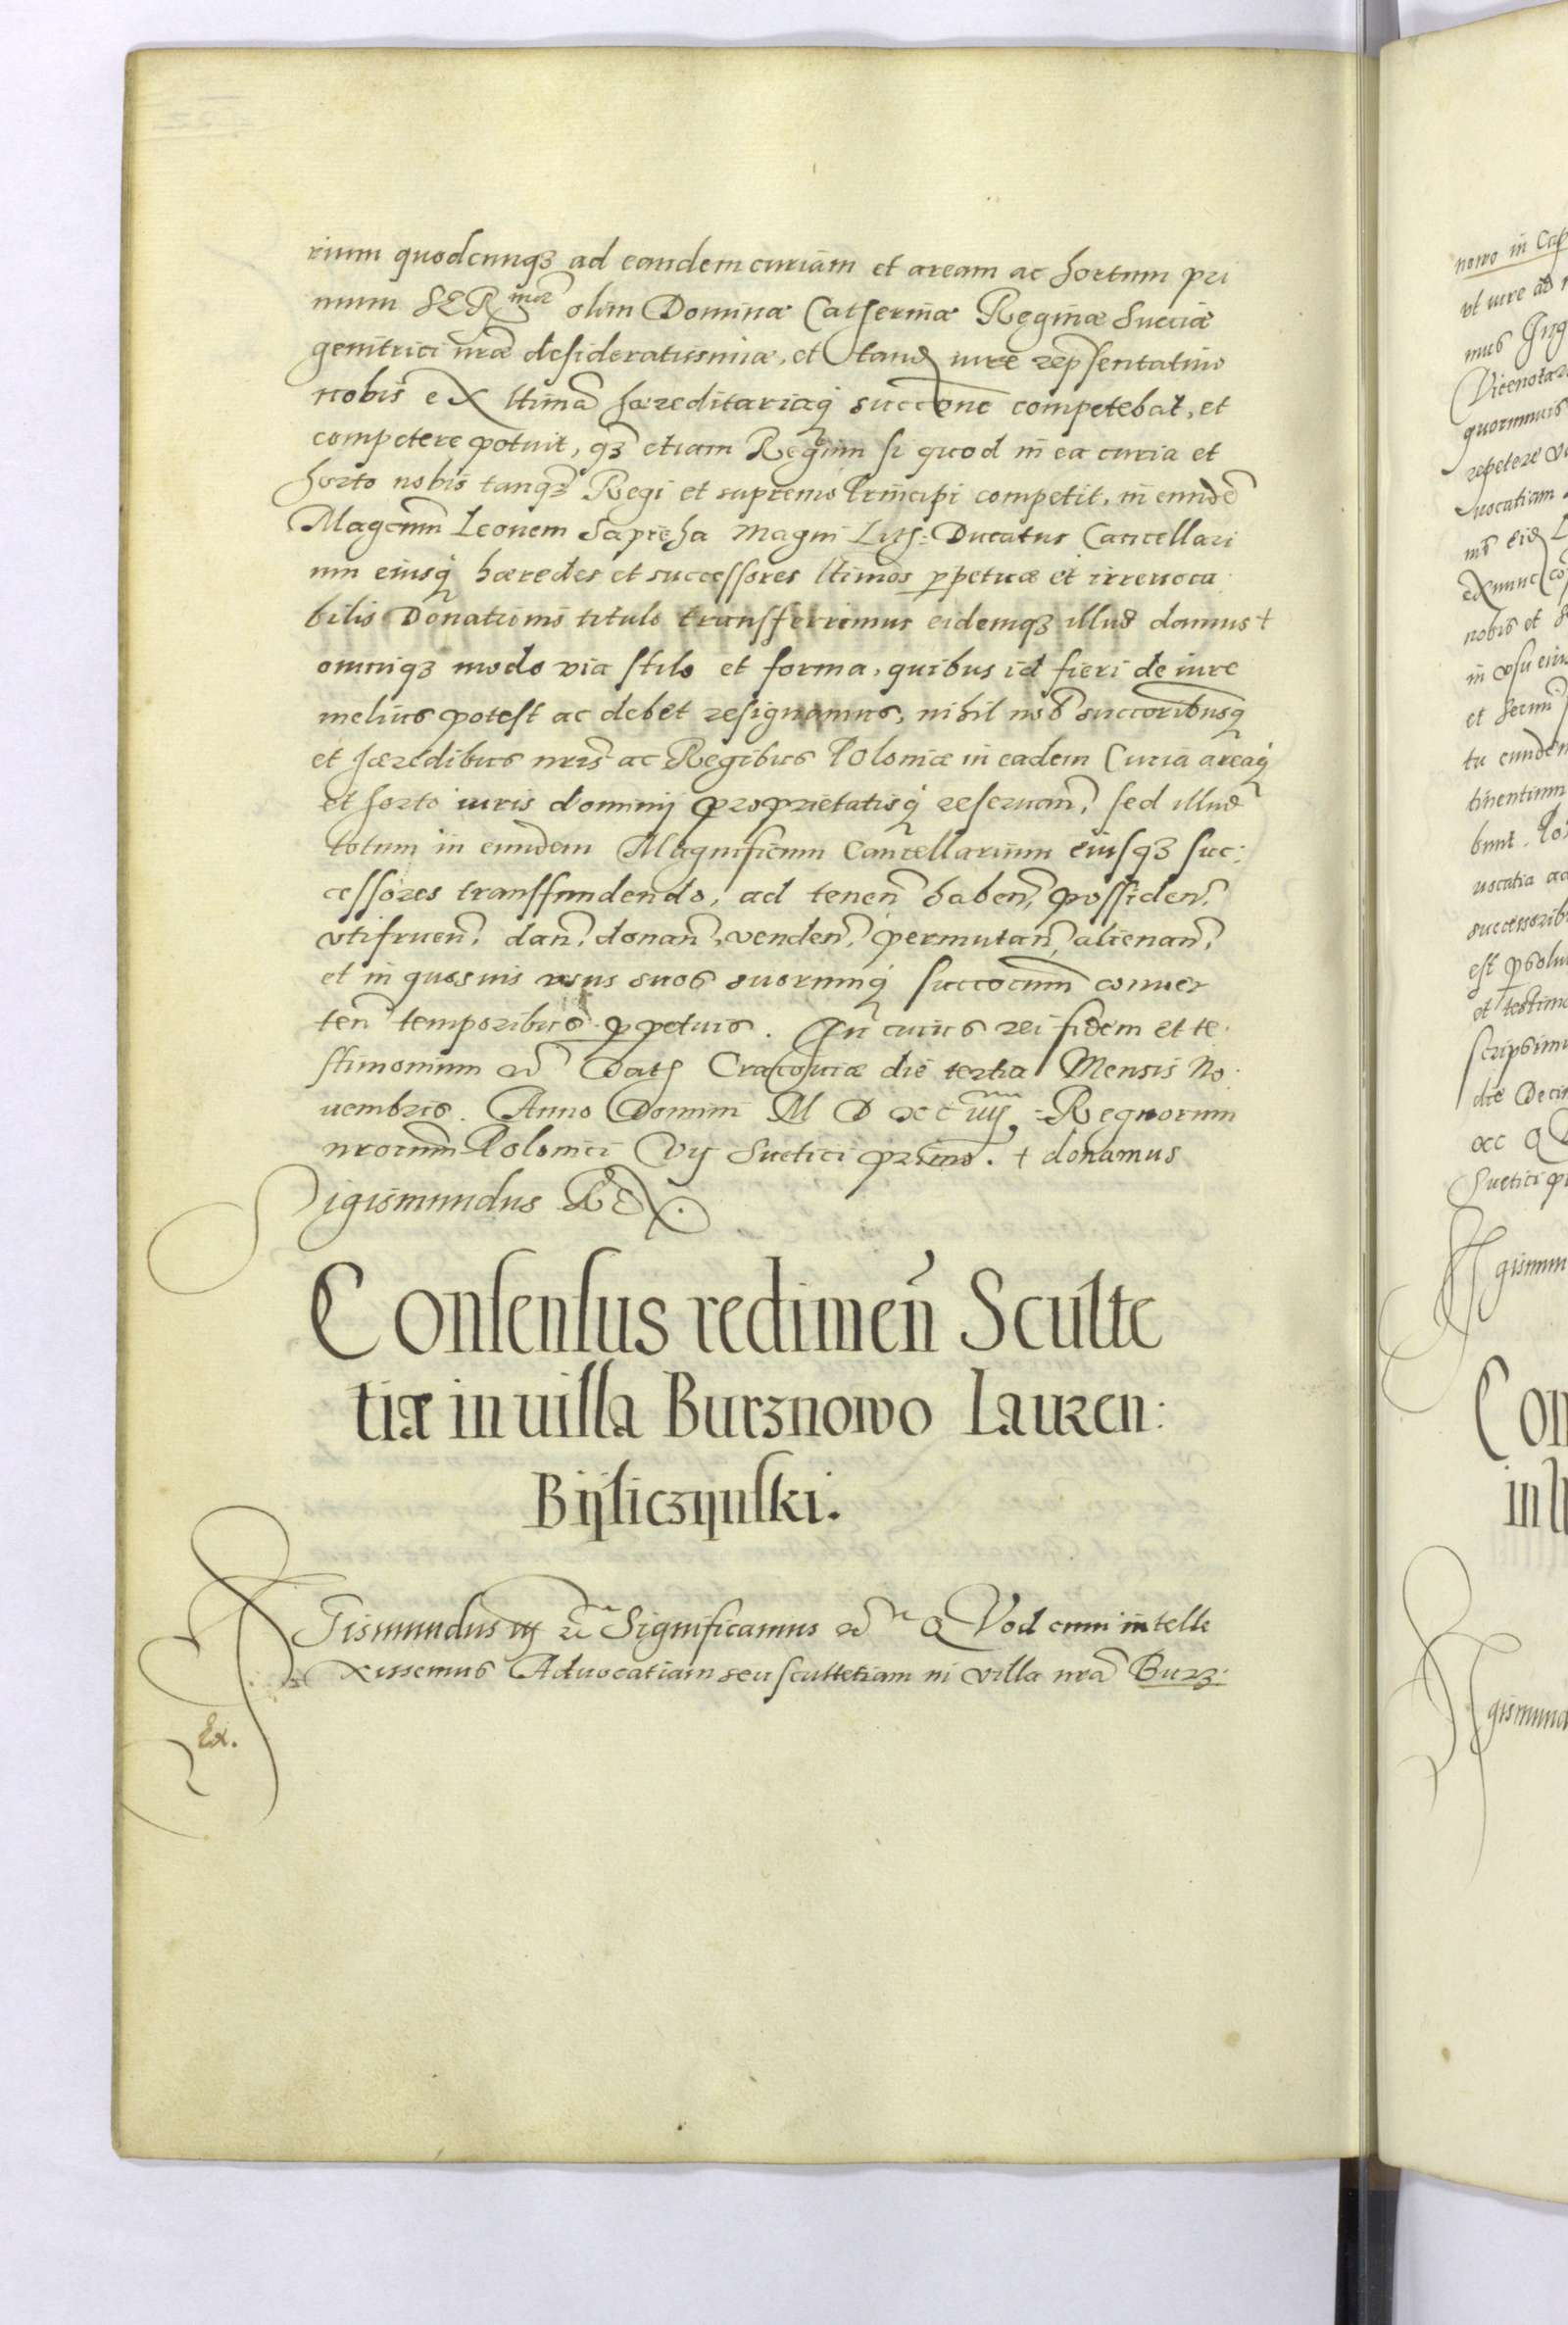 rium quodcunqȝ ad eandem curiam et aream ac hortum pri
mum SERmæ olim Dominæ Catherinæ Reginæ Sueciæ
genitrici nræ desideratissimæ, et tanq iure repsentatiuo
nobis eX ltima hæreditariaq succone competebat, et
competere potuit, qȝ etiam Regium si quod in ea curia et
horto nobis tanqȝ Regi et supremo Principi competit, in eunde
Magcum Leonem Sapieha Magni Lith: Ducatus Cancellari
um eiusq hæredes et successores ltimos ppetuæ et irreuoca
bilis Donationis titulo transferrimus eidemqȝ illud damus +
omniqȝ modo via stilo et forma, quibus id fieri de iure
melius potest ac debet resignamus, nihil nob succoribusq
et hæredibus nris ac Regibus Poloniæ in eadem Curia areaq
et horto iuris dominij proprietatisq reseruan, sed illud
totum in eundem Magnificum Cancellarium eiusqȝ suc:
cessores transfundendo, ad tenen haben, possiden,
vtifruen, dan, donan, venden, permutan, alienan,
et in quosuis usus suos suorumq succorum conuer
ten temporibus ppetuis. In cuius rei fidem et te
stimonium Dat Cracouiæ die tertia Mensis No
uembris. Anno Domini M D xc iiij. Regnorum
nrorum Polonici Vij Suetici primo. + donamus
Sigismundus REX.
Consensus redimen Sculte
tiæ in villa Burznowo Lauren:
Bijsliczijnski.
Sigismundus iij Significamus QVod cum intelle
xissemus Aduocatiam seu scultetiam in villa nra Burz:
Ex.
nowo in Cap
vt iure ad
mus
Vicenota
quorumuis
repetere
uocatiam
exnunc
nobis et
in vsu eius
et
tu eundem
tinentium
bunt.
uocatia ad
successorib
est psolu
et testimo
scripsimu
die Deci
xc
Suetici p
gismun
Con
in
gismund